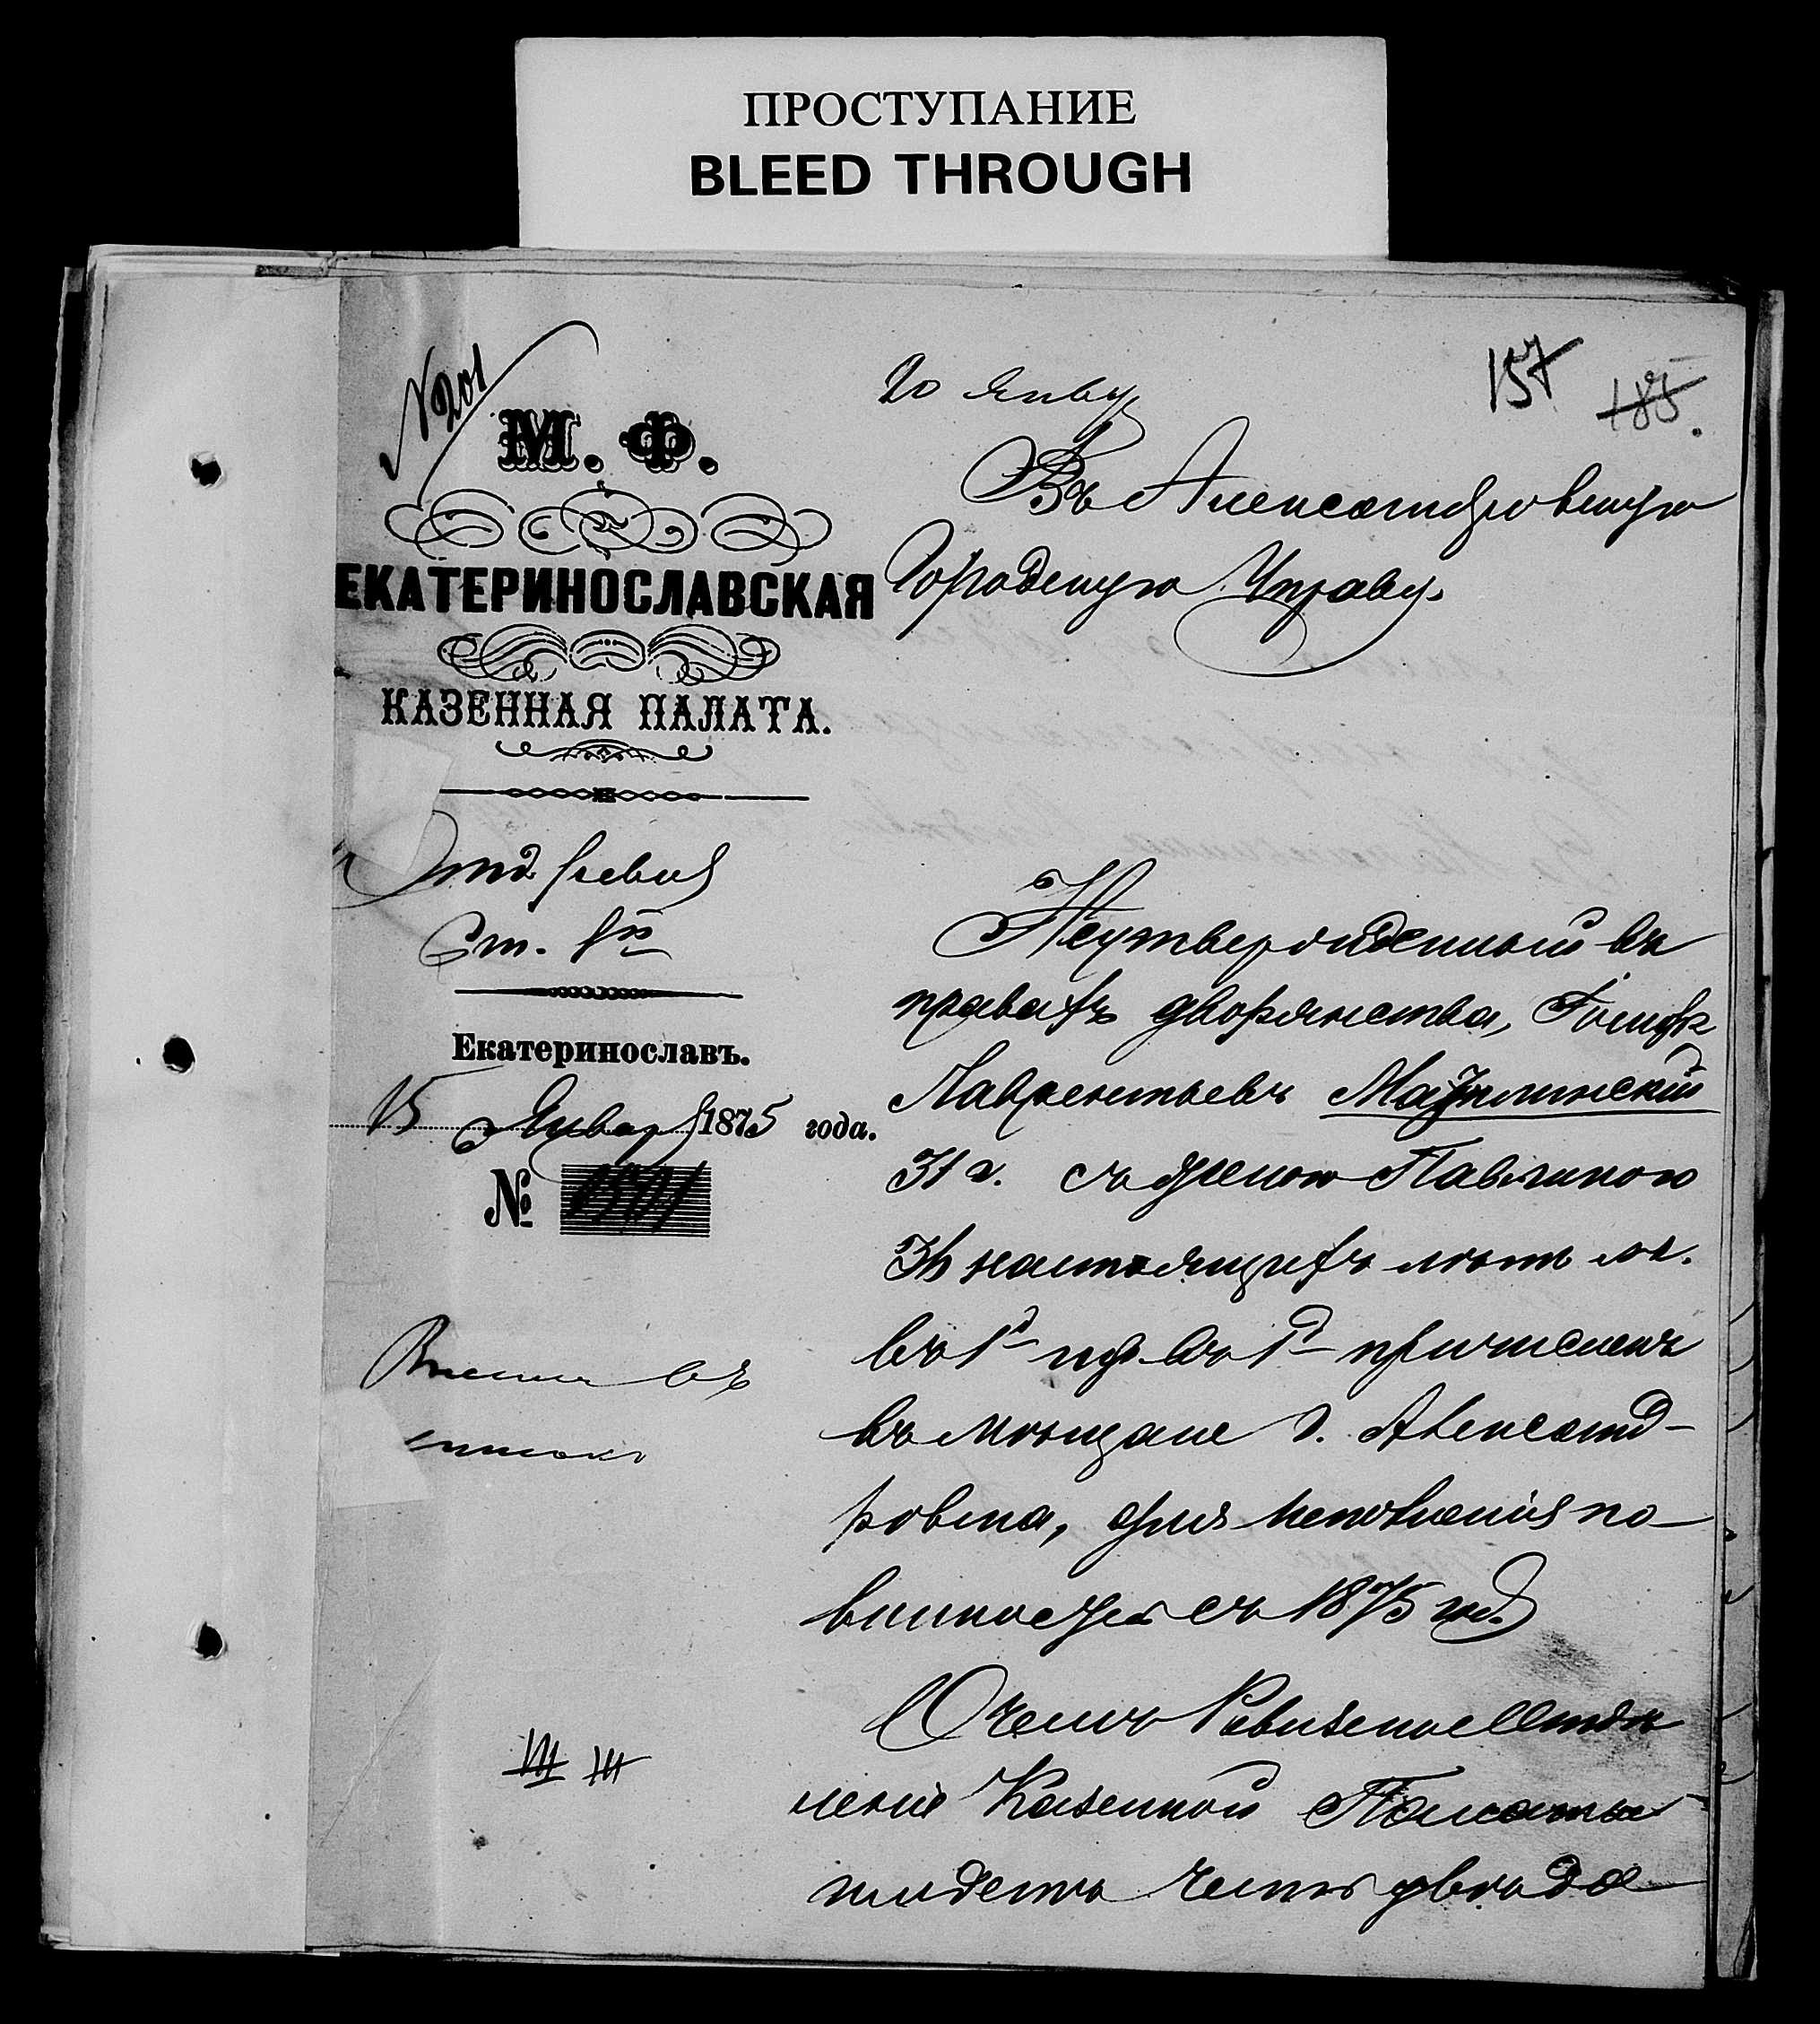 ПРОСТУПАНИЕ
BLEED THROUGH
№ 201
20 Янвр
157
185.
М. Ф.
ЕКАТЕРИНОСЛАВСКАЯ
КАЗЕННАЯ ПАЛАТА.
Отд. Ревиз
Ст. 1я
Екатеринославъ.
15 Января 1875 года.
№
въ
списокъ
Въ Александровскую
Городскую Управу.
Неутвержденный въ
правахъ дворянства, Іосифъ
Лаврентьевъ
31 г. съ женою Павлиною
настоящихъ лѣтъ
въ 1й въ 1й причисленъ
въ мѣщане г. Александ-
ровска, для исполненія по-
винностей съ 1875 год.
О чемъ Ревизское Отдѣ
леніе Казенной Палаты
имѣетъ честь увѣдо